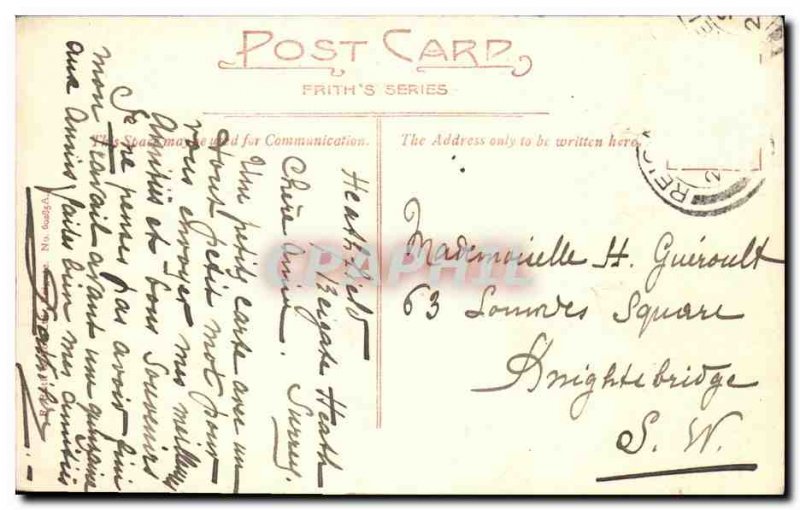 POST CARD
FRITH'S SERIES
This Space may be used for Communication.
The Address only to be written here.
Heathfield
Reigate Heath
Surrey.
Chère Amie.
Une petite carte avec un
tout petit mot pour
vous envoyer mes meilleurs
Amitiés et bons Souvenirs
Je ne penses pas avoir fini
mon travail avant une quinzaine
aux Amies faites bien mes amitiés
Mademoiselle H. Guéroult
63 Lowndes Square
Knightsbridge
S. W.
REIG
2
No. 60285A
CPAPHIL